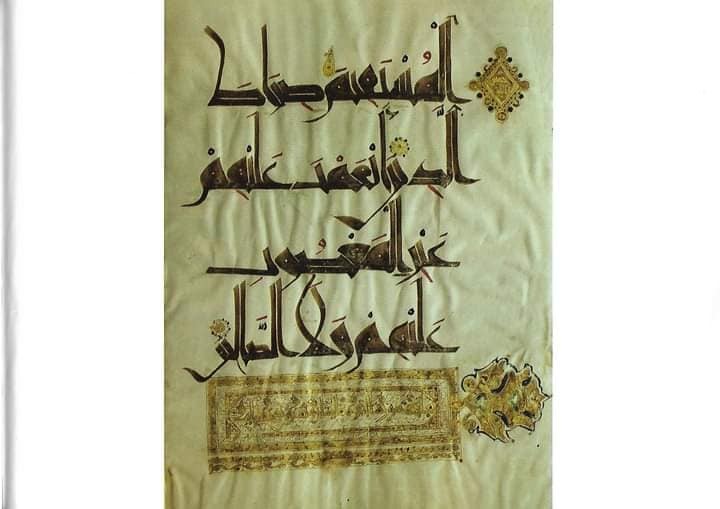 ٱلْمُسْتَقِيمَ صِرَاطَ
ٱلَّذِينَ أَنْعَمْتَ عَلَيْهِمْ
غَيْرِ ٱلْمَغْضُوبِ
عَلَيْهِمْ وَلَا ٱلضَّالِّينَ